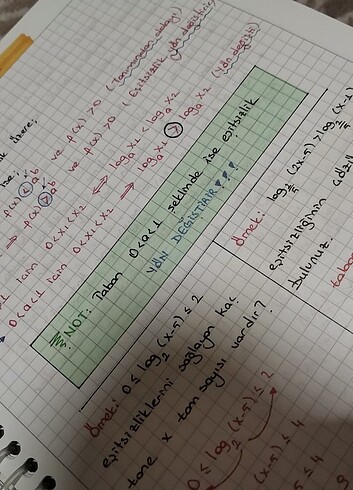 ve f(x) > 0 (Tanımından dolayı)
f(x) < a^b ve f(x) > 0 (Eşitsizlik yön değiştirir)
⇒ f(x) > a^b
için 0 < x₁ < x₂ ⇔ logₐx₁ < logₐx₂
0<a<1 için 0 < x₁ < x₂ ⇒ logₐx₁ > logₐx₂ (Yön değişti)
NOT: Taban 0<a<1 şeklinde ise eşitsizlik
YÖN DEĞİŞTİRİR!!!
Örnek: 0 ≤ log₂(x-5) ≤ 2
eşitsizliklerini sağlayan kaç
tane x tam sayısı vardır?
0 ≤ log₂(x-5) ≤ 2
(x-5) ≤ 4
5 ≤ 4
Örnek: log (2x-5) > log (x-
eşitsizliğinin çözü
bulunuz.
taba